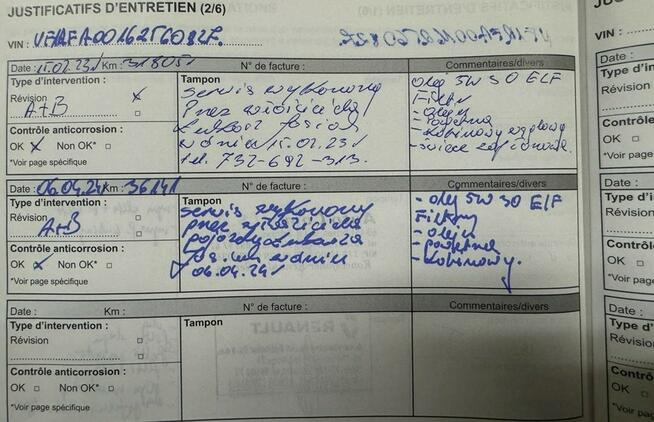 JUSTIFICATIFS D'ENTRETIEN (2/6)
VIN :
Date : 15.02.23r Km : 31805
N° de facture :
Commentaires/divers
Type d'intervention :
Révision
A+B
Contrôle anticorrosion :
OK Non OK* :
*Voir page spécifique
Tampon
Serwis wykonany
Przez właściciela
w dniu 15.02.23r
tel. 732-692-313.
Olej 5W30 ELF
Filtry
- oleju
- powietrza
- kabinowy węglowy
- świece zapłonowe.
Date : 06.04.24r Km : 36141
N° de facture :
Commentaires/divers
Type d'intervention :
Révision
A+B
Contrôle anticorrosion :
OK Non OK*
*Voir page spécifique
Tampon
Serwis wykonany
przez właściciela
pojazdu
w dniu
06.04.24r
- olej 5W30 ELF
Filtry
- oleju
- powietrza
- kabinowy.
Date : Km :
N° de facture :
Commentaires/divers
Type d'intervention :
Révision
Contrôle anticorrosion :
OK Non OK*
*Voir page spécifique
Tampon
RENAULT
VIN :
Date :
Type d'in
Révision
Contrôle
OK
*Voir page
Date :
Type d'in
Révision
Contrô
OK
*Voir pag
Date
Type
Révisi
Contrô
OK
*Voir